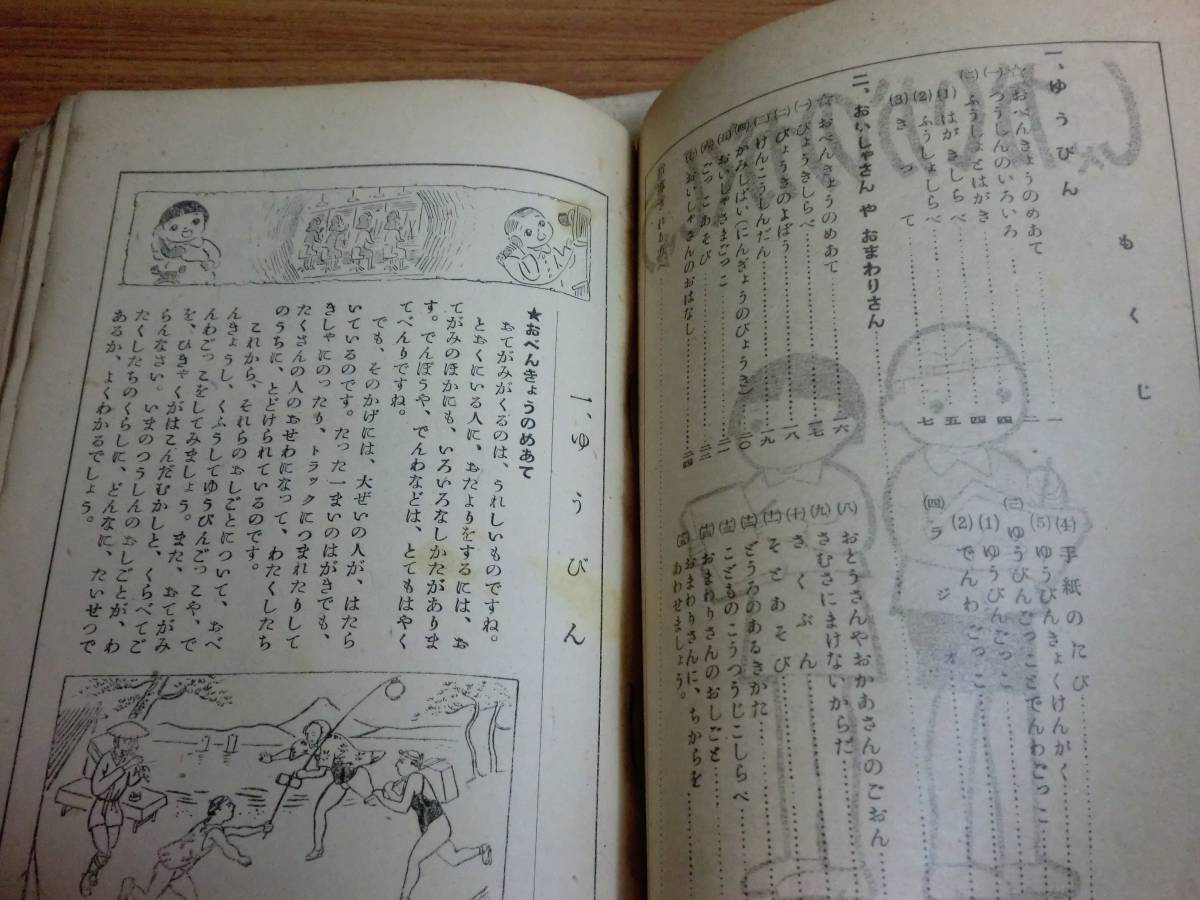 もくじ
一、ゆうびん
☆おべんきょうのめあて 一
(一)つうしんのいろいろ 二
(二)ふうしょとはがき 四
(1)はがきしらべ 四
(2)ふうしょしらべ 五
(3)きって 七
二、おいしゃさん や おまわりさん
☆おべんきょうのめあて 一六
(一)びょうきしらべ 一七
(二)びょうきのよぼう 一八
(三)けんこうしんだん 一九
(四)かみしばい(にんぎょうのびょうき) 二〇
(五)おいしゃさまごっこ 二一
(六)ごっこあそび 二二
(七)おいしゃさんのおはなし 二四
(4)手紙のたび
(5)ゆうびんきょくけんがく
(三)ゆうびんごっことでんわごっこ
(1)ゆうびんごっこ
(2)でんわごっこ
(四)ラジオ
(八)おとうさんやおかあさんのごおん
(九)さむさにまけないからだ
(十)さくぶん
(十一)そとあそび
(十二)どうろのあるきかた
(十三)こどものこうつうじこしらべ
(十四)おまわりさんのおしごと
(十五)おまわりさんに、ちからを
あわせましょう。
一、ゆうびん
★おべんきょうのめあて
おてがみがくるのは、うれしいものですね。
とおくにいる人に、おたよりをするには、お
てがみのほかにも、いろいろなしかたがありま
す。でんぽうや、でんわなどは、とてもはやく
てべんりですね。
でも、そのかげには、大ぜいの人が、はたら
いているのです。たった一まいのはがきでも、
きしゃにのったり、トラックにつまれたりして
たくさんの人のおせわになって、わたくしたち
のうちに、とどけられているのです。
これから、それらのおしごとについて、おべ
んきょうし、くふうしてゆうびんごっこや、で
んわごっこをしてみましょう。また、おてがみ
を、ひきゃくがはこんだむかしと、くらべてご
らんなさい。いまのつうしんのおしごとが、わ
たくしたちのくらしに、どんなに、たいせつで
あるか、よくわかるでしょう。